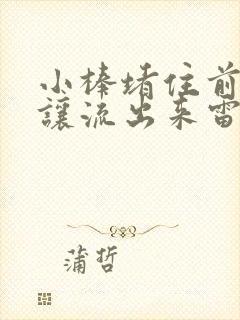 小棒堵住前
讓流出来雷
蒲哲